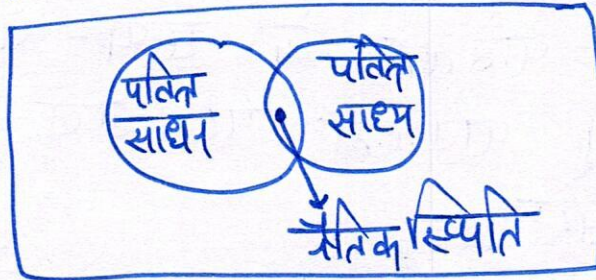 पवित्र
साधन
पवित्र
साध्य
नैतिक स्थिति